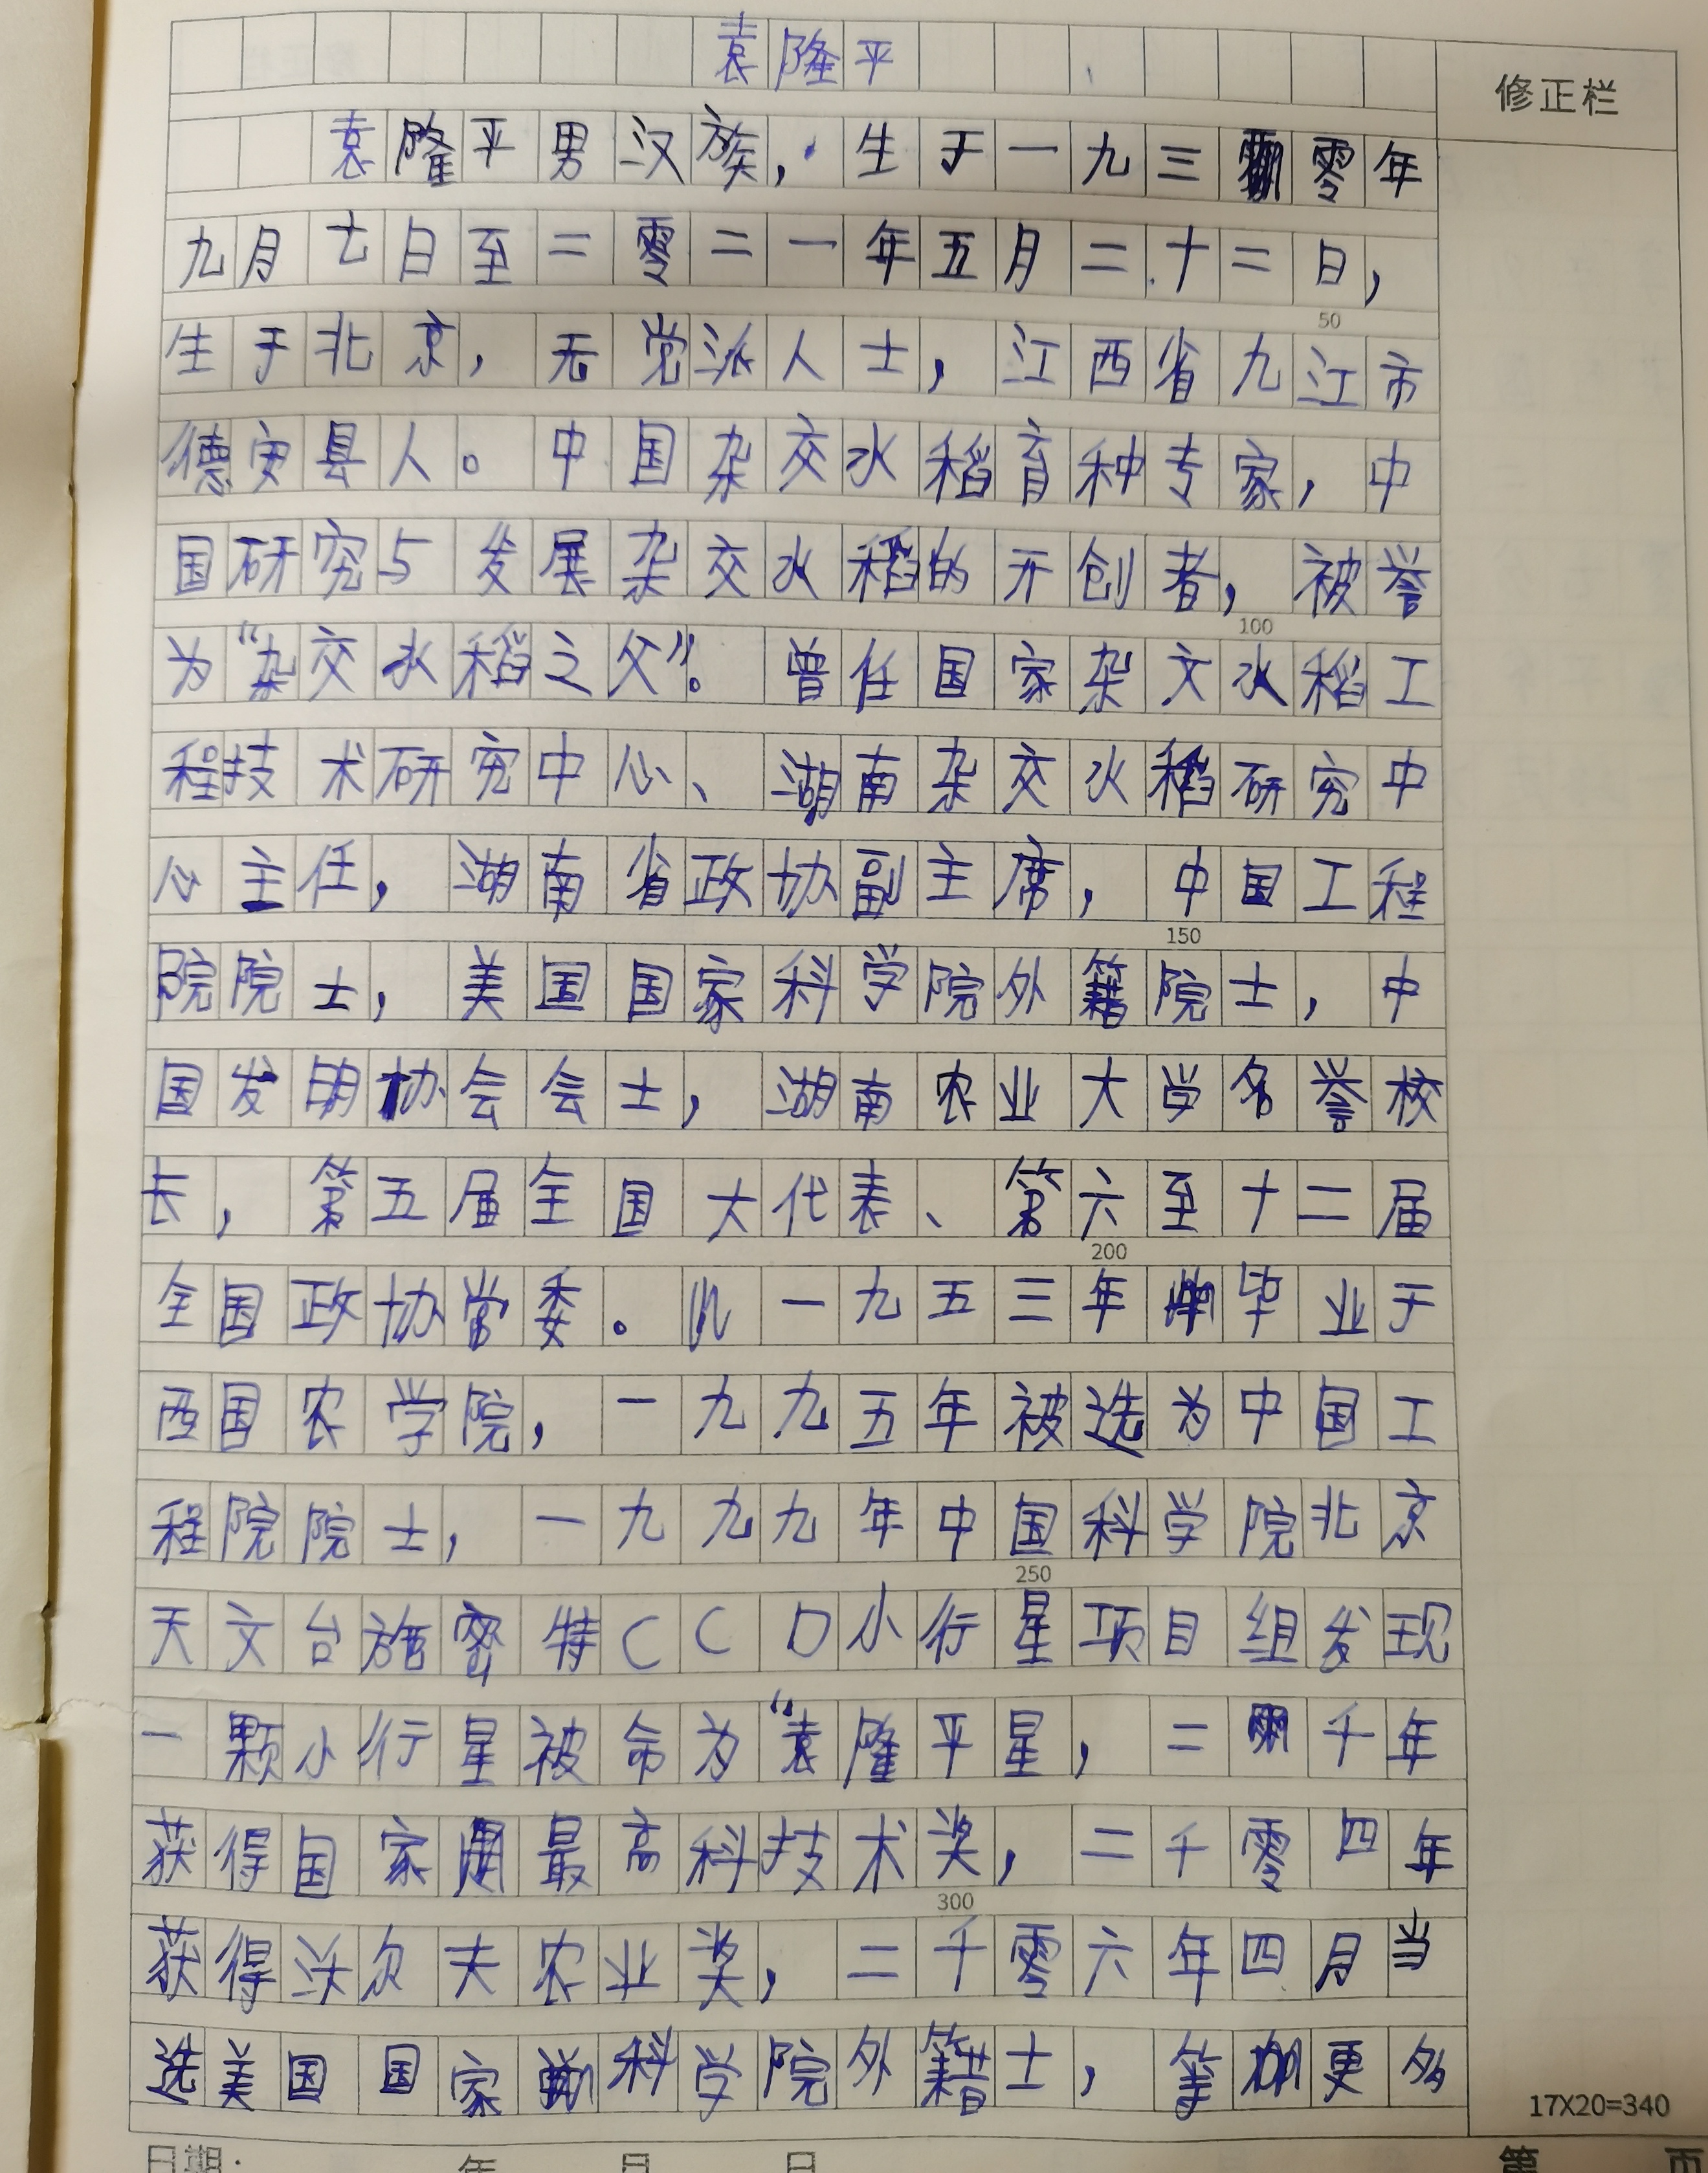 袁隆平
修正栏
袁隆平男汉族，生于一九三零年
九月七日至二零二一年五月二十二日，
50
生于北京，无党派人士，江西省九江市
德安县人。中国杂交水稻育种专家，中
国研究与发展杂交水稻的开创者，被誉
100
为“杂交水稻之父”。曾任国家杂文水稻工
程技术研究中心、湖南杂交水稻研究中
心主任，湖南省政协副主席，中国工程
150
院院士，美国国家科学院外籍院士，中
国发明协会会士，湖南农业大学名誉校
长，第五届全国大代表、第六至十二届
200
全国政协常委。一九五三年毕业于
西国农学院，一九九五年被选为中国工
程院院士，一九九九年中国科学院北京
250
天文台施密特CCD小行星项目组发现
一颗小行星被命为“袁隆平星，二千年
获得国家最高科技术奖，二千零四年
300
获得沃尔夫农业奖，二千零六年四月当
选美国国家科学院外籍士，等更多
17X20=340
日期： 年 月 日
第 页